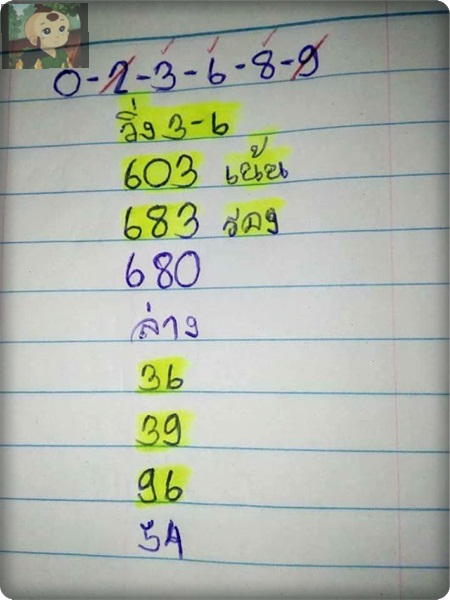 0-2-3-6-8-9
วิ่ง 3-6
603 เน้น
683 รอง
680
ล่าง
36
39
96
54